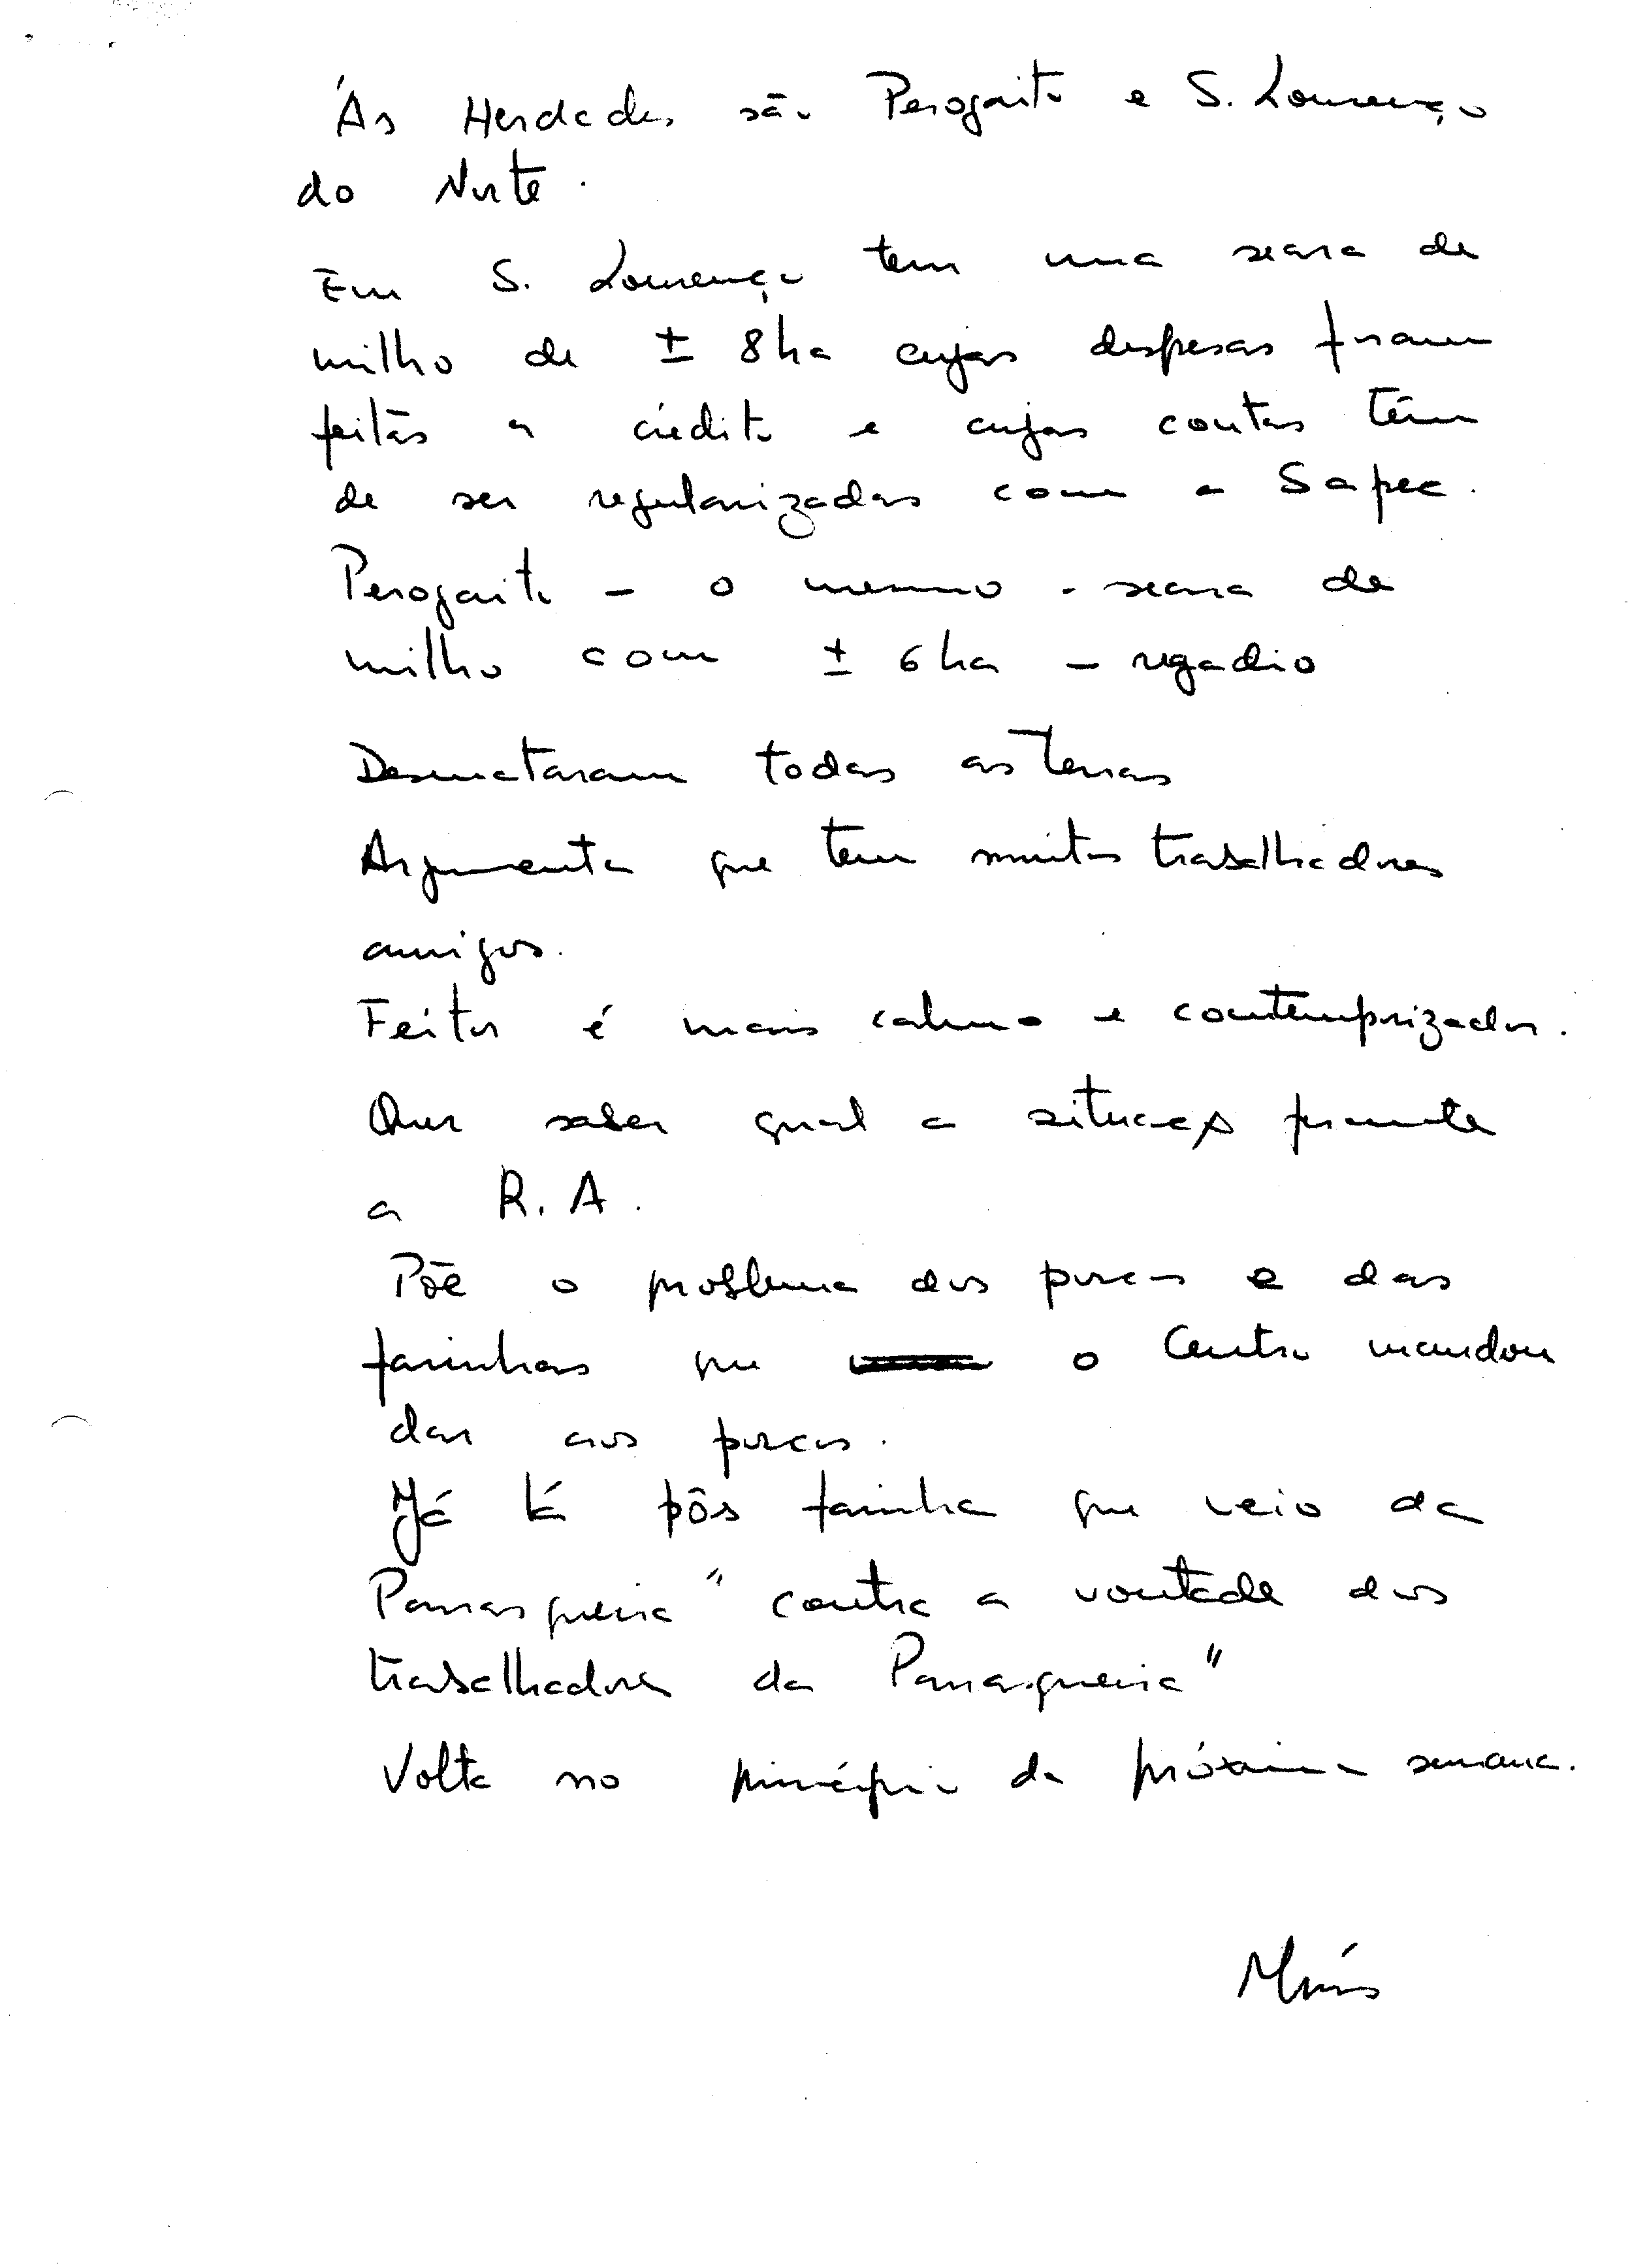 As Herdades são Perogarito e S. Lourenço
do Norte.
Em S. Lourenço tem uma seara de
milho de ± 8 ha cujas despesas foram
feitas a crédito e cujas contas têm
de ser regularizadas com a Sapec.
Perogarito – o mesmo - seara de
milho com ± 6 ha – regadio
Desmataram todas as Terras
Argumenta que tem muitos trabalhadores
amigos.
Feitor é mais calmo e contemporizador.
Quer saber qual a situação perante
a R. A.
Põe o problema dos porcos e das
farinhas que o Centro mandou
dar aos porcos.
Já lá pôs farinha que veio da
Panasqueira "contra a vontade dos
trabalhadores da Panasqueira"
Volta no princípio da próxima semana.